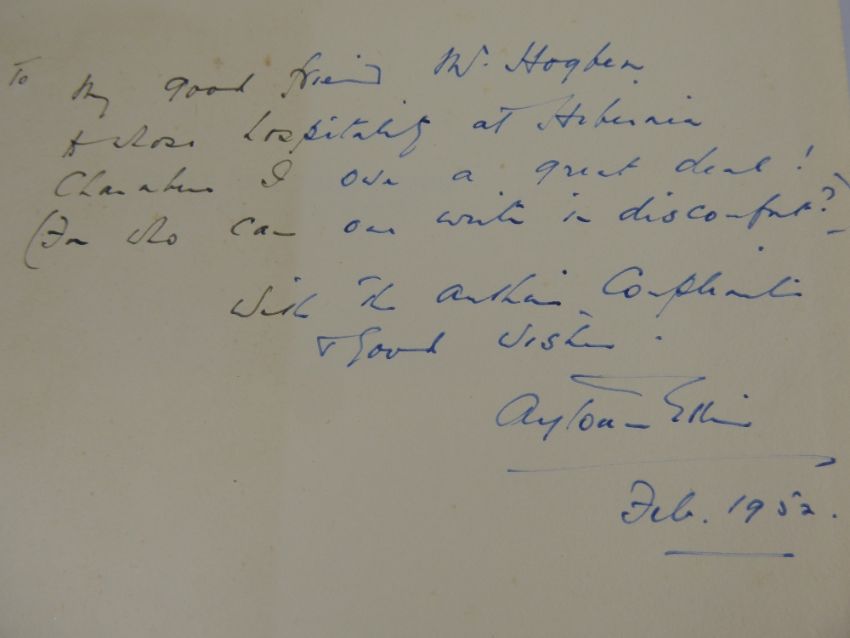 To my good friend Mr. Hogben
to whose hospitality at Hibernia
Chambers I owe a great deal!
(For who can one write in discomfort?)
With the Author's Compliments
& Good Wishes.
Aytoun Ellis
Feb. 1952.